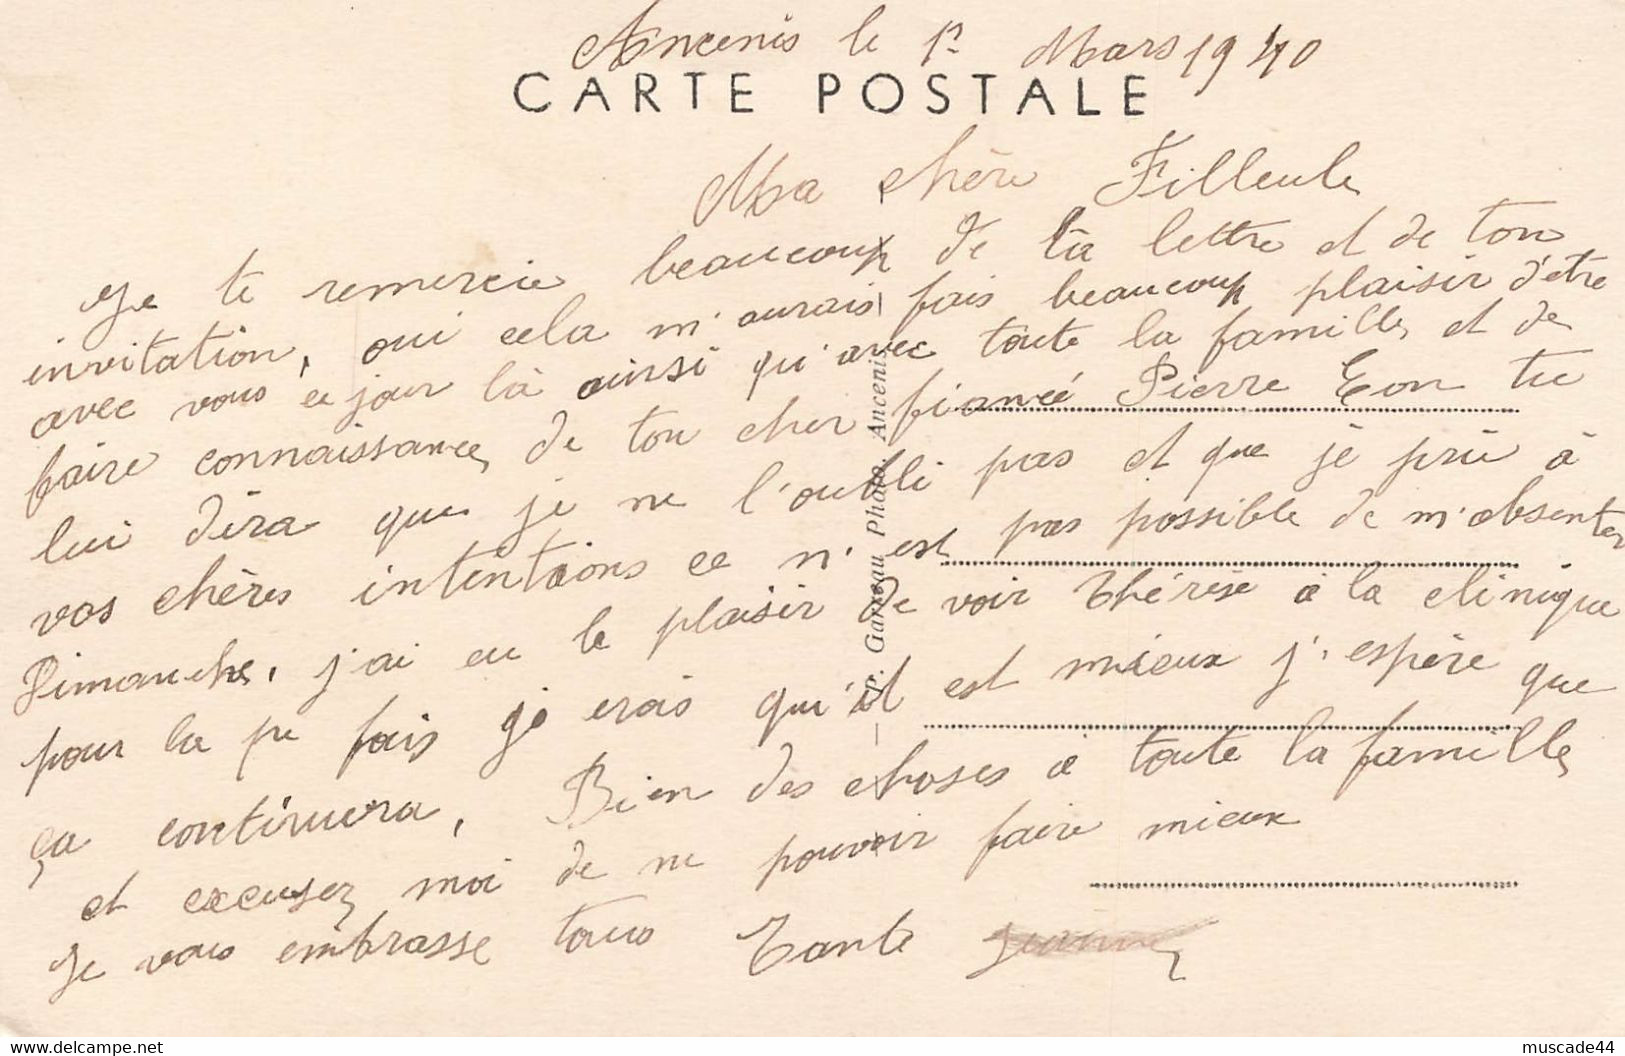 Ancenis le 1er Mars 1940
CARTE POSTALE
Ma chère Filleule
Je te remercie beaucoup de ta lettre et de ton
invitation, oui cela m'aurais fais beaucoup plaisir d'être
avec vous ce jour là ainsi qu'avec toute la famille et de
faire connaissance de ton cher fiancé Pierre Eon tu
lui dira que je ne l'oubli pas et que je prie à
vos chères intentions ce n'est pas possible de m'absenter
Dimanche, j'ai eu le plaisir de voir Thérèse à la clinique
pour la fois je crois qu'il est mieux j'espère que
ça continuera, Bien des choses à toute la famille
et excusez moi de ne pouvoir faire mieux
Je vous embrasse tous Tante Jeanne
P. Garreau Photo. Ancenis
Delcampe.net
muscade44